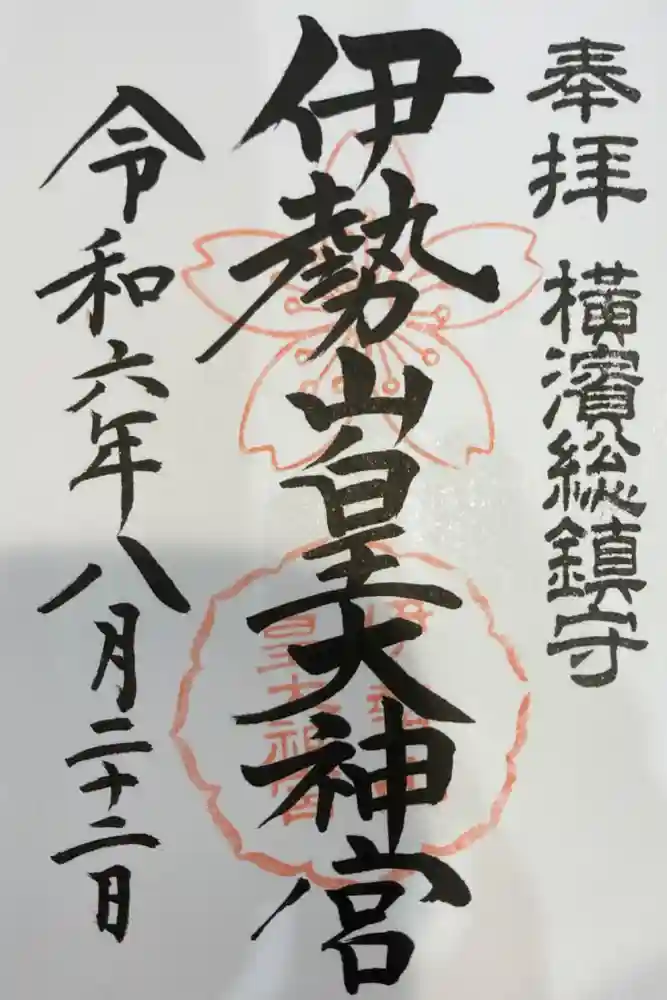 奉拝 横濱総鎮守
伊勢山皇大神宮
伊勢山
皇大神宮
令和六年八月二十二日